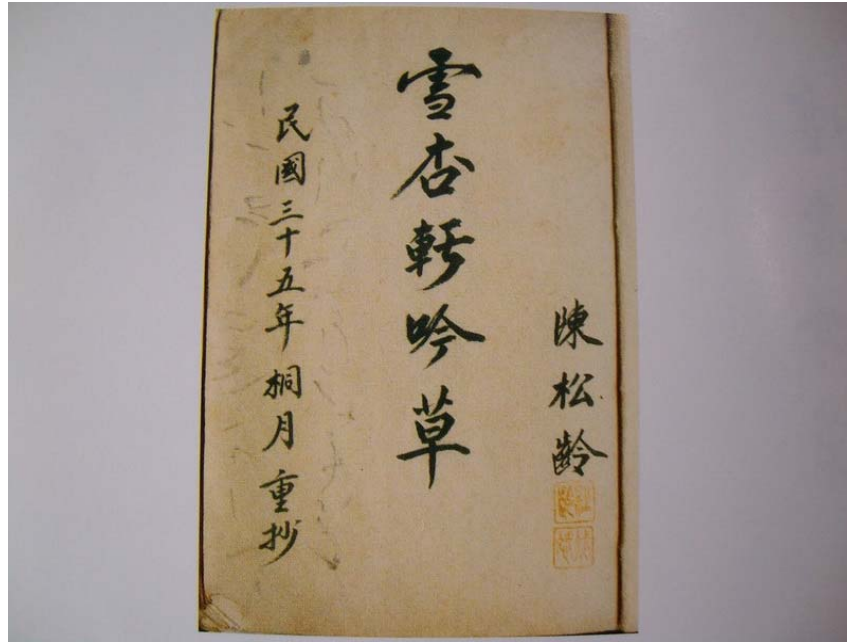 陳松齡
雪杏軒吟草
民國三十五年桐月重抄